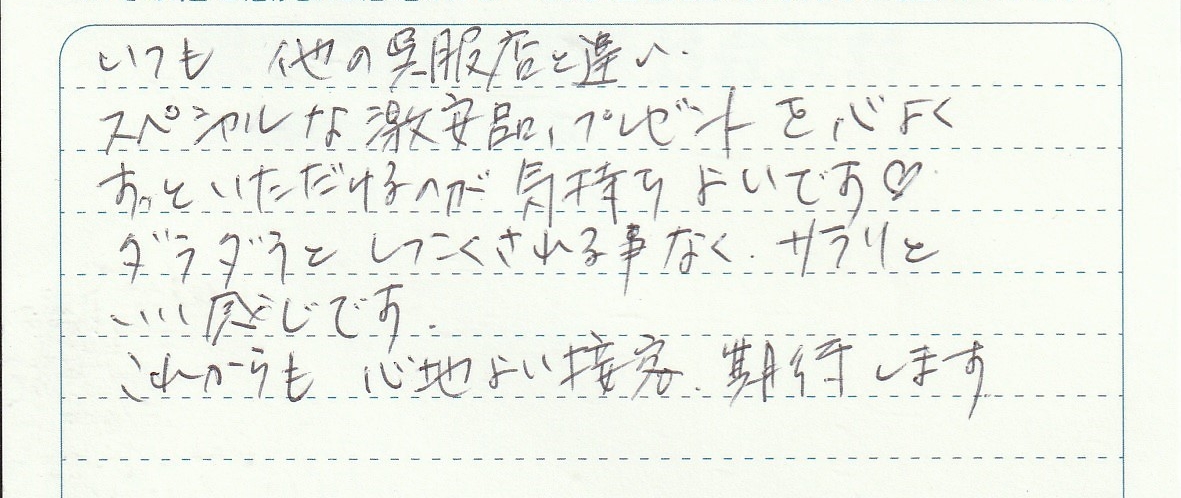 いつも 他の呉服店と違い、
スペシャルな激安品、プレゼントを心よく
すっといただけるのが気持ちよいです♡
ダラダラとしつこくされる事なく、サラリと
いい感じです。
これからも 心地よい接客、期待します